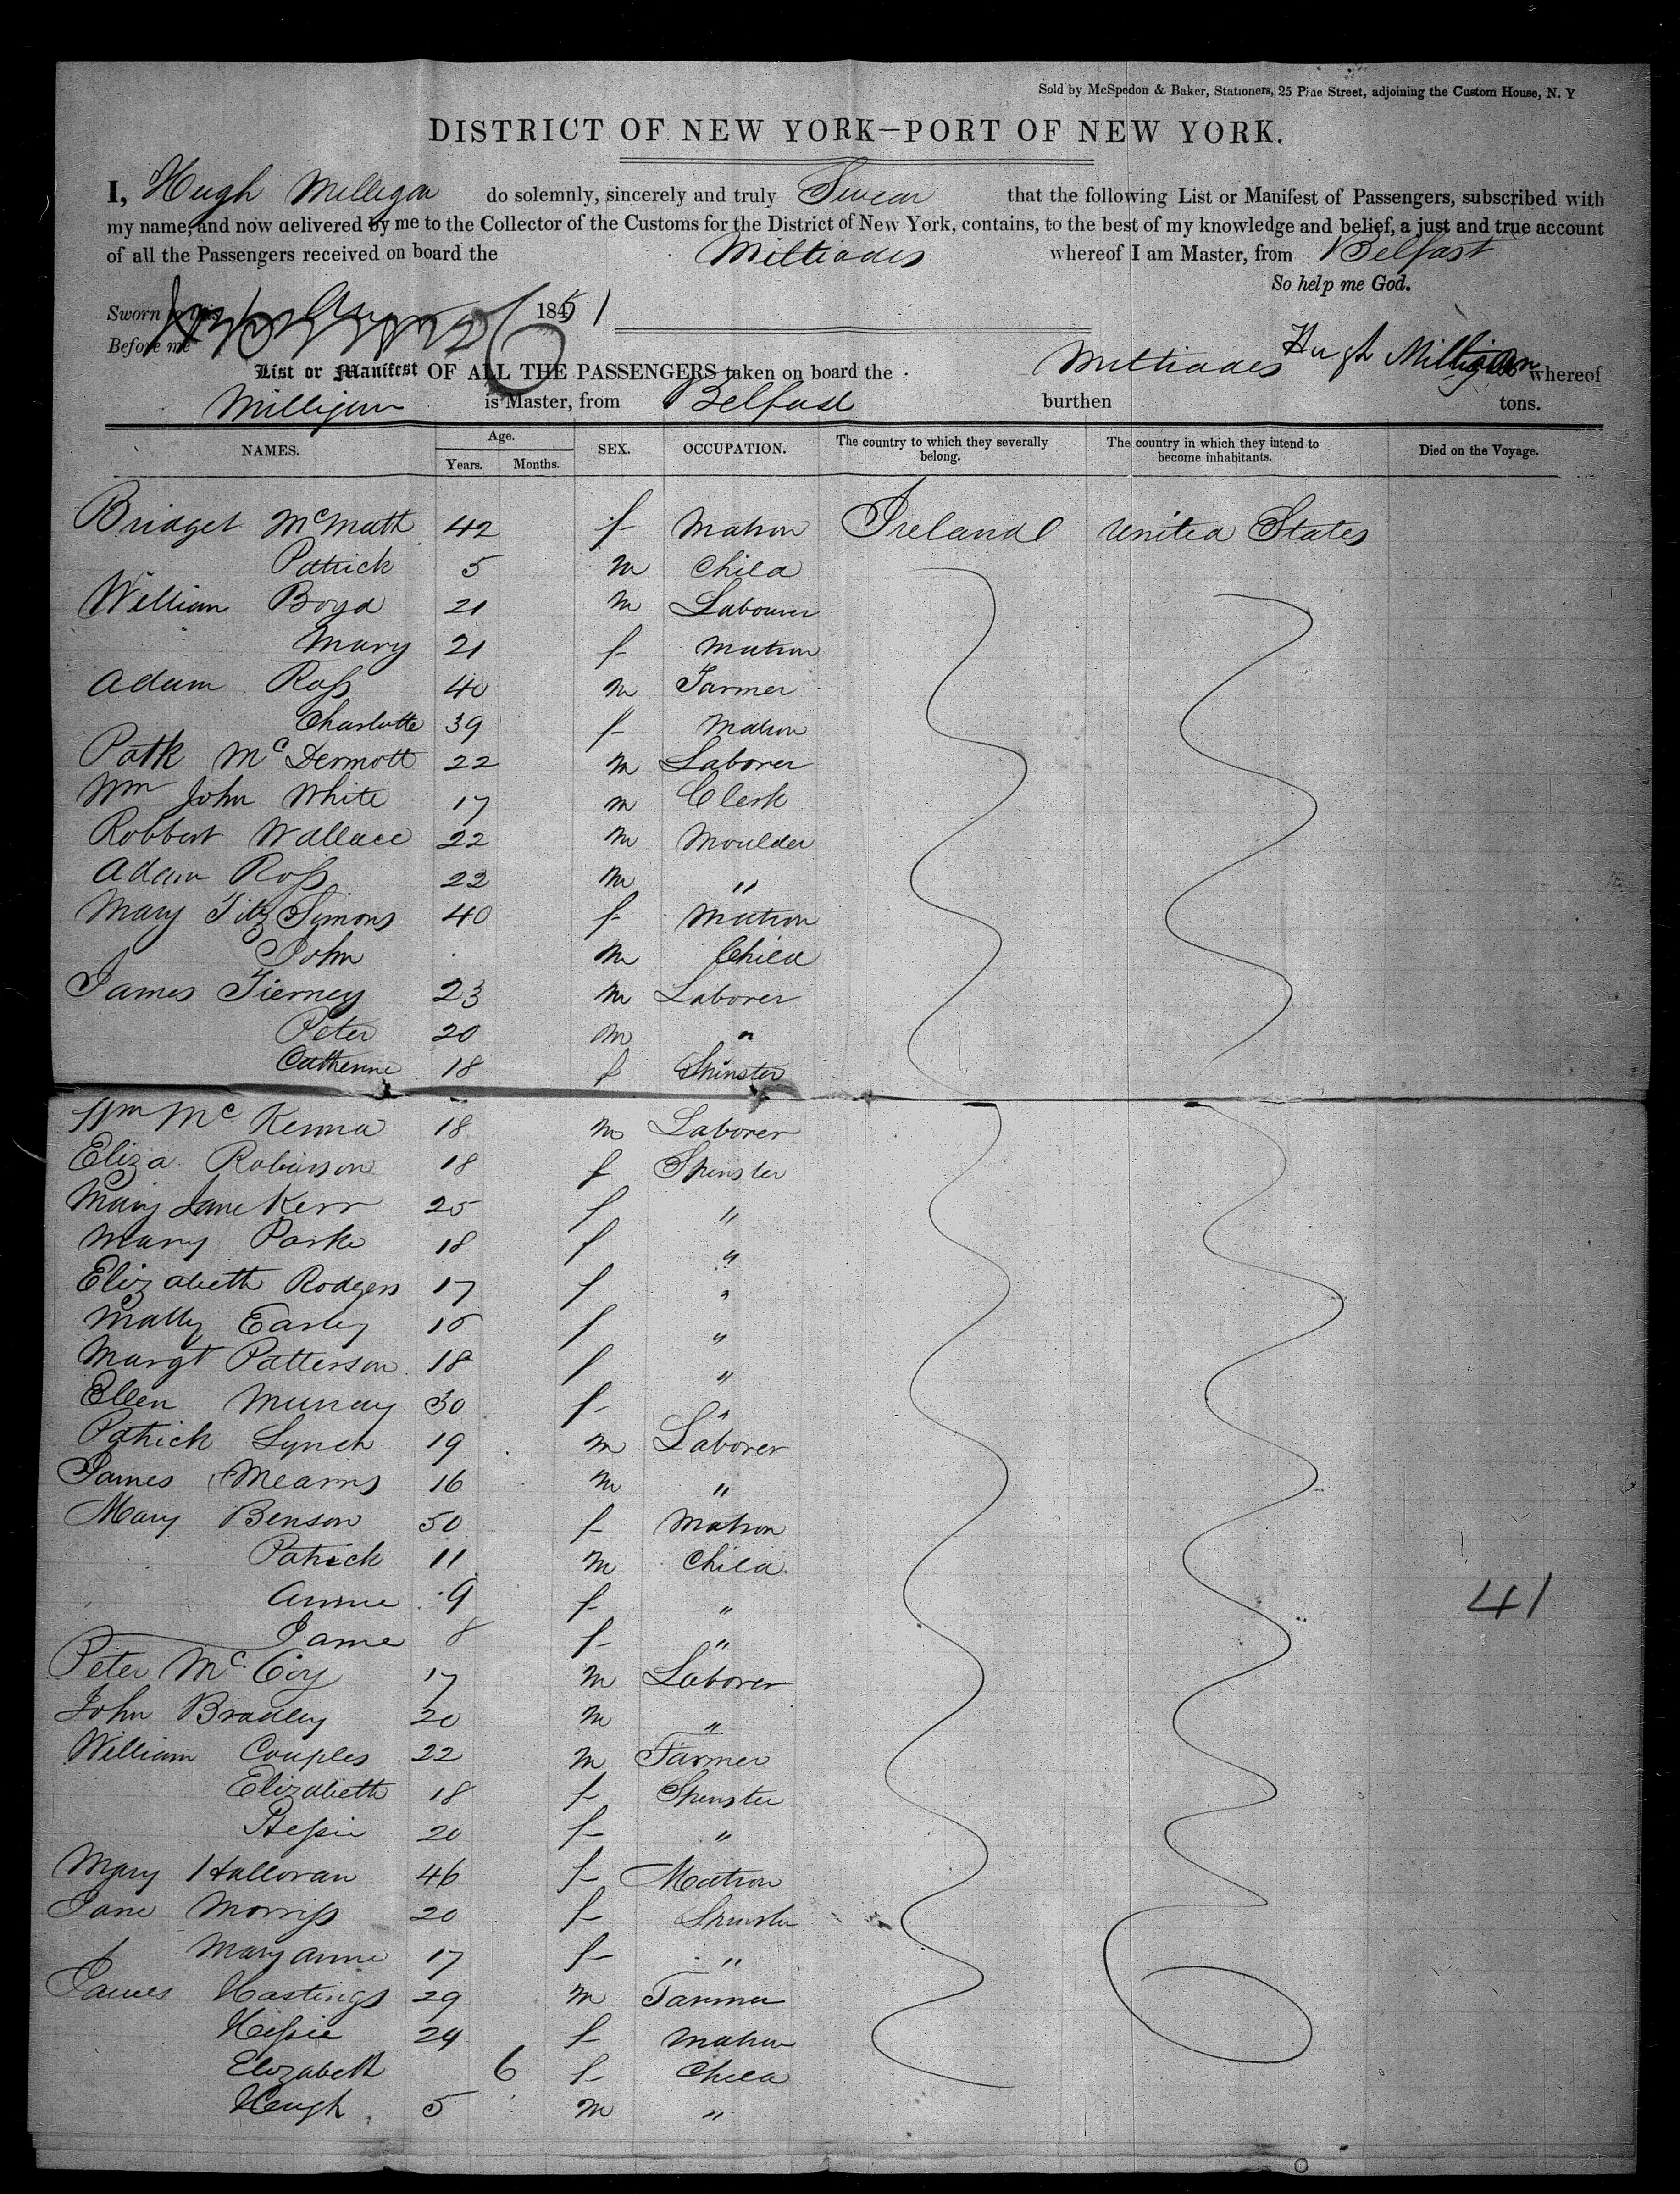 Sold by McSpedon & Baker, Stationers, 25 Pine Street, adjoining the Custom House, N. Y
DISTRICT OF NEW YORK—PORT OF NEW YORK.
I, Hugh Milligan do solemnly, sincerely and truly Swear that the following List or Manifest of Passengers, subscribed with
my name, and now delivered by me to the Collector of the Customs for the District of New York, contains, to the best of my knowledge and belief, a just and true account
of all the Passengers received on board the Miltiades whereof I am Master, from Belfast
So help me God.
Sworn to this 1851
Before me Hugh Milligan
List or Manifest OF ALL THE PASSENGERS taken on board the Miltiades whereof
Milligan is Master, from Belfast burthen tons.
NAMES. Age. Years. Months. SEX. OCCUPATION. The country to which they severally belong. The country in which they intend to become inhabitants. Died on the Voyage.
Bridget McMath 42 f Matron Ireland United States
Patrick 5 m Child
William Boyd 21 m Labourer
Mary 21 f Matron
Adam Ross 40 m Farmer
Charlotte 39 f Matron
Patk McDermott 22 m Laborer
Wm John White 17 m Clerk
Robbert Wallace 22 m Moulder
Adam Ross 22 m "
Mary Fitz Simons 40 f Matron
John m Child
James Tierney 23 m Laborer
Peter 20 m "
Catherine 18 f Spinster
Wm McKenna 18 m Laborer
Eliza Robinson 18 f Spinster
Mary Jane Kerr 25 f "
Mary Parke 18 f "
Elizabeth Rodgers 17 f "
Matty Earley f "
Margt Patterson 18 f "
Ellen Murray 30 f "
Patrick Lynch 19 m Laborer
James Mearns 16 m "
Mary Benson 50 f Matron
Patrick 11 m Child
Annie 9 f "
Jane 8 f "
Peter McCoy 17 m Laborer
John Bradley 20 m "
William Couples 22 m Farmer
Elizabeth 18 f Spinster
Bessie 20 f "
Mary Halloran 46 f Matron
Jane Morriss 20 f Spinster
Mary Anne 17 f "
James Hastings 29 m Farmer
24 f Matron
Elizabeth 6 f Child
Hugh 5 m "
41